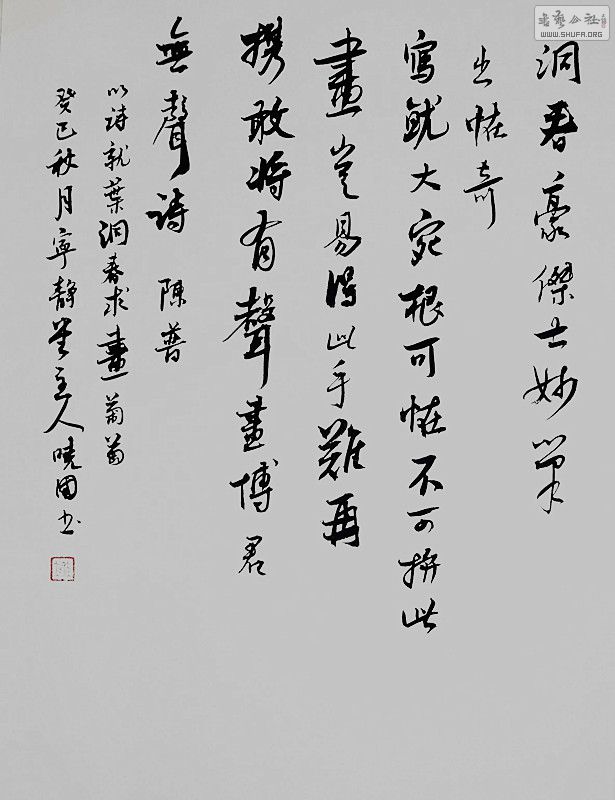 書藝公社
WWW.SHUFA.ORG
洞春豪傑士妙筆
出怪奇
寫就大宛根可怪不可拚此
畫豈易得此手難再
携敢將有聲畫博君
無聲詩 陳普
以詩就葉洞春求畫葡萄
癸巳秋月寧静堂主人曉国书